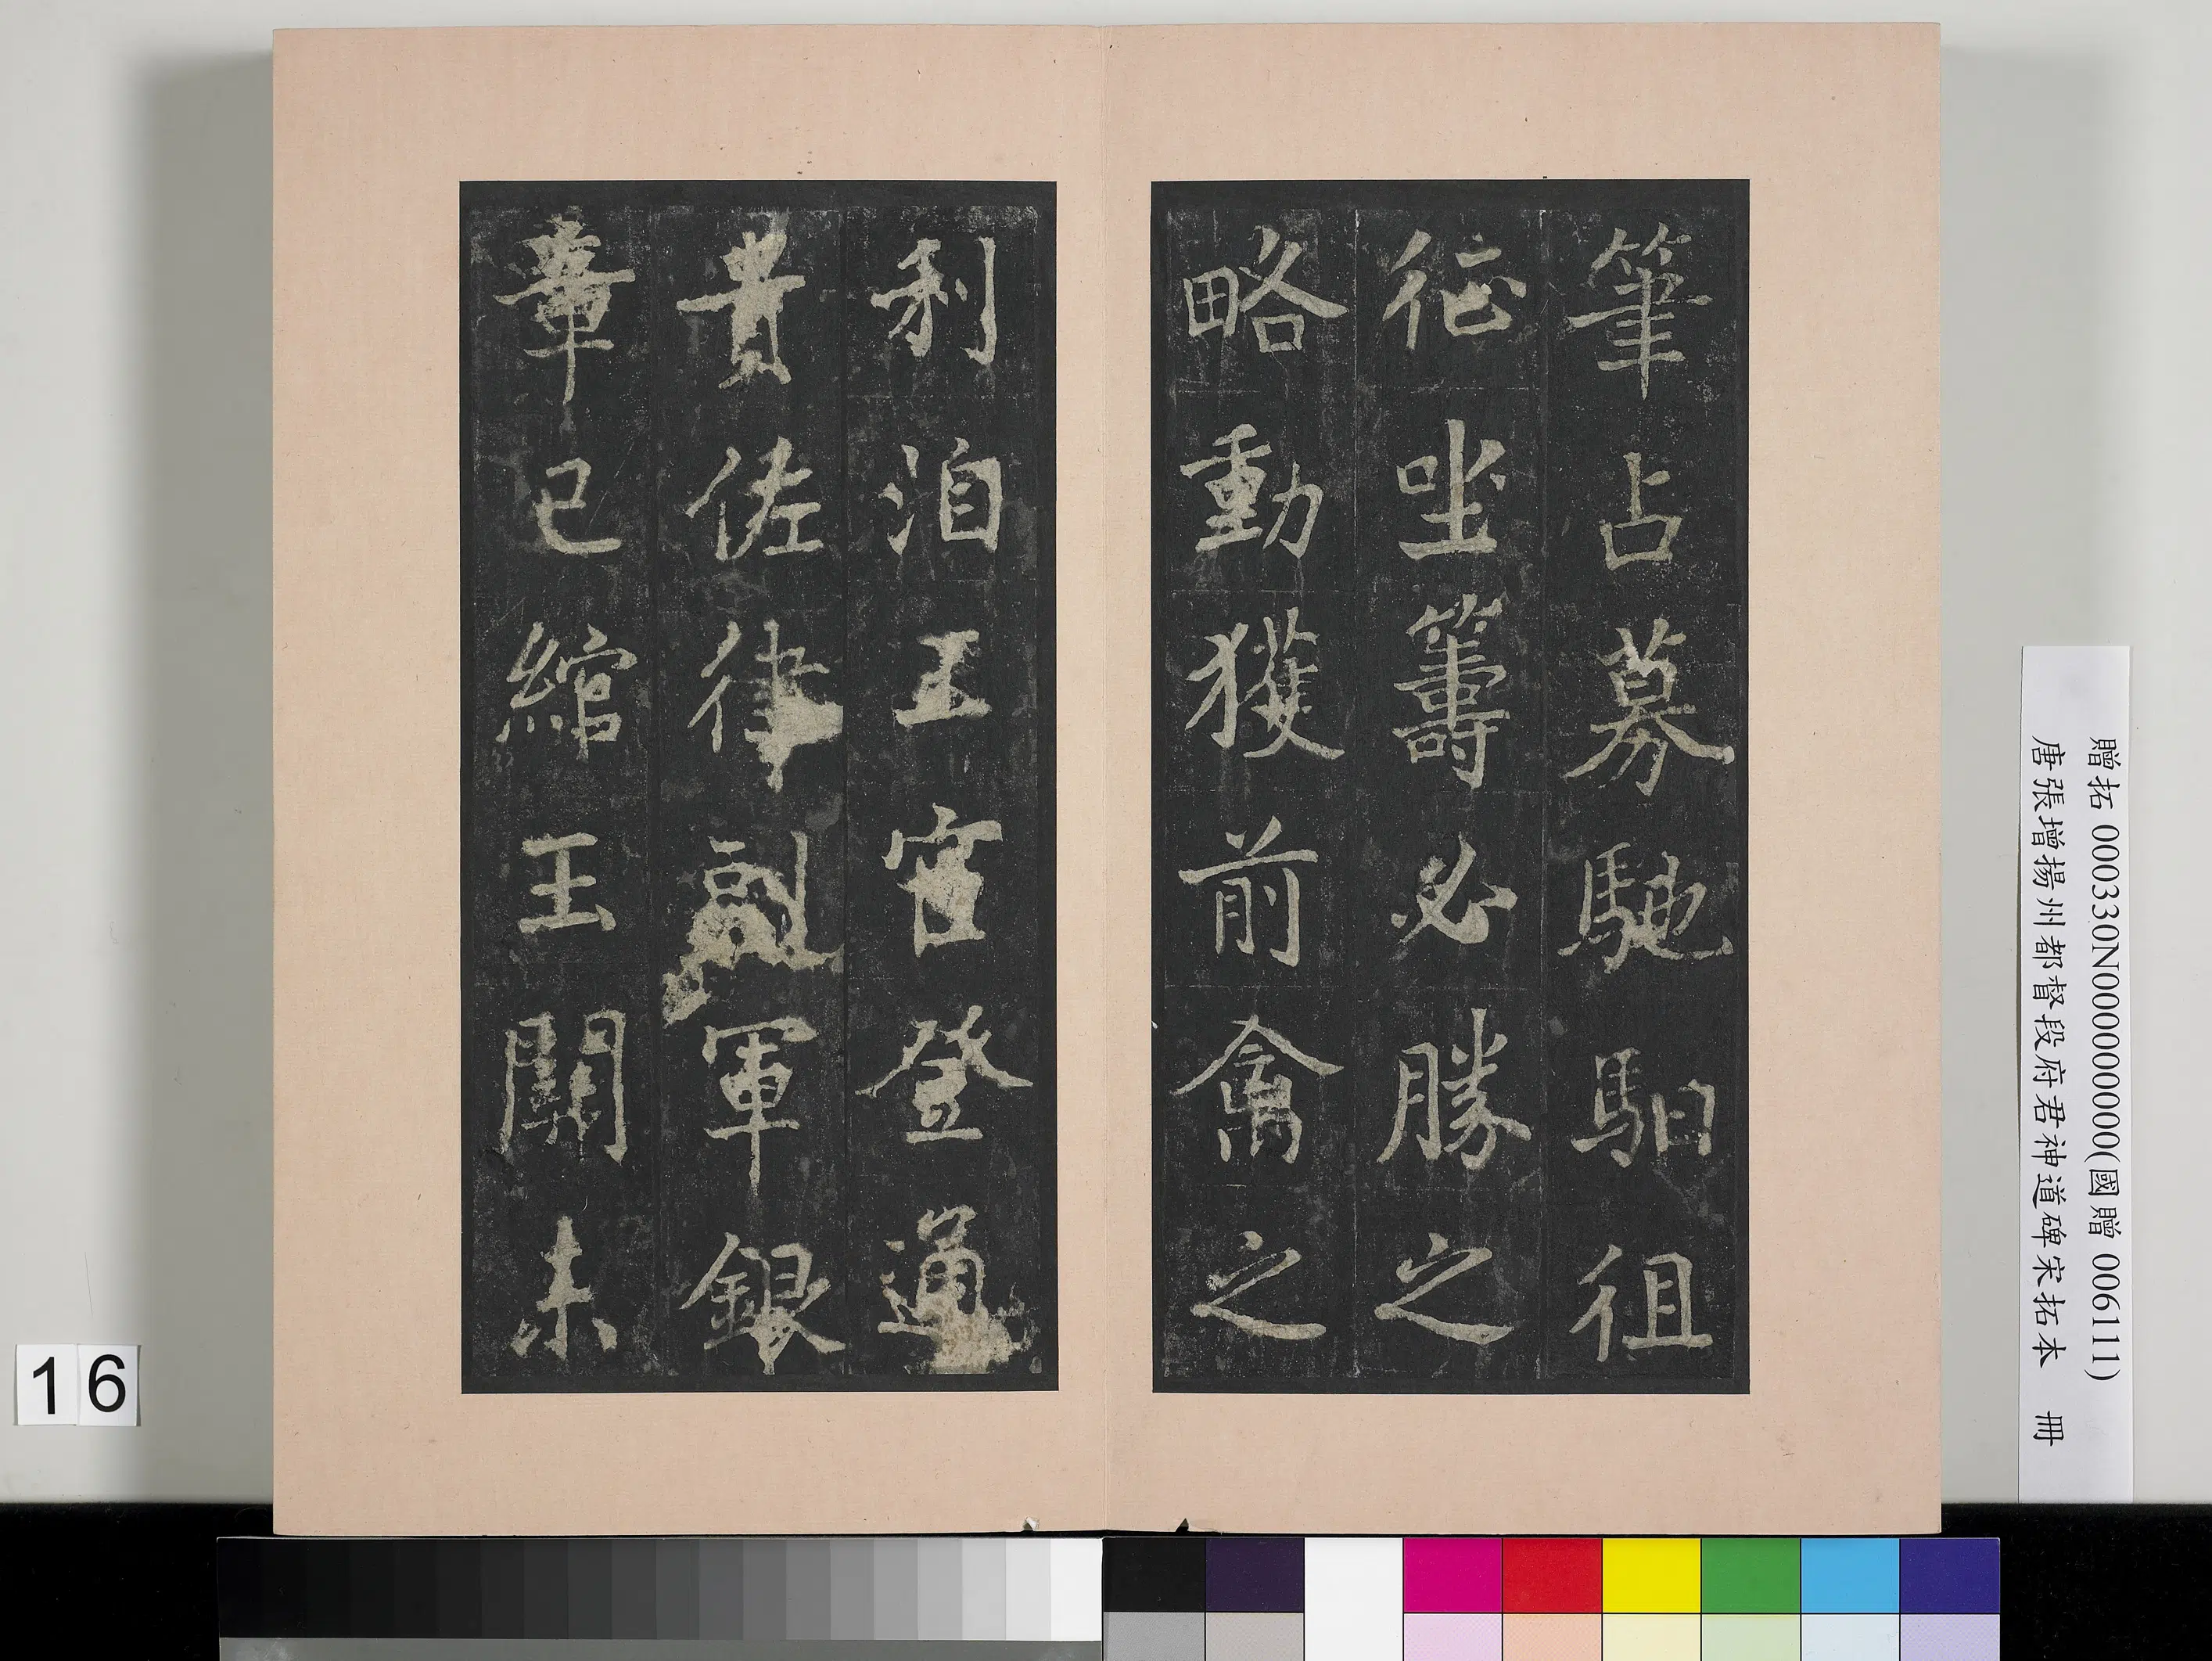 筆占募馳馹徂
征坐籌必勝之
略動獲前禽之
利洎王宮登通
貴佐律副軍銀
章已綰玉關未
16
贈拓 000330N000000000(國贈 006111)
唐張增揚州都督段府君神道碑宋拓本 冊